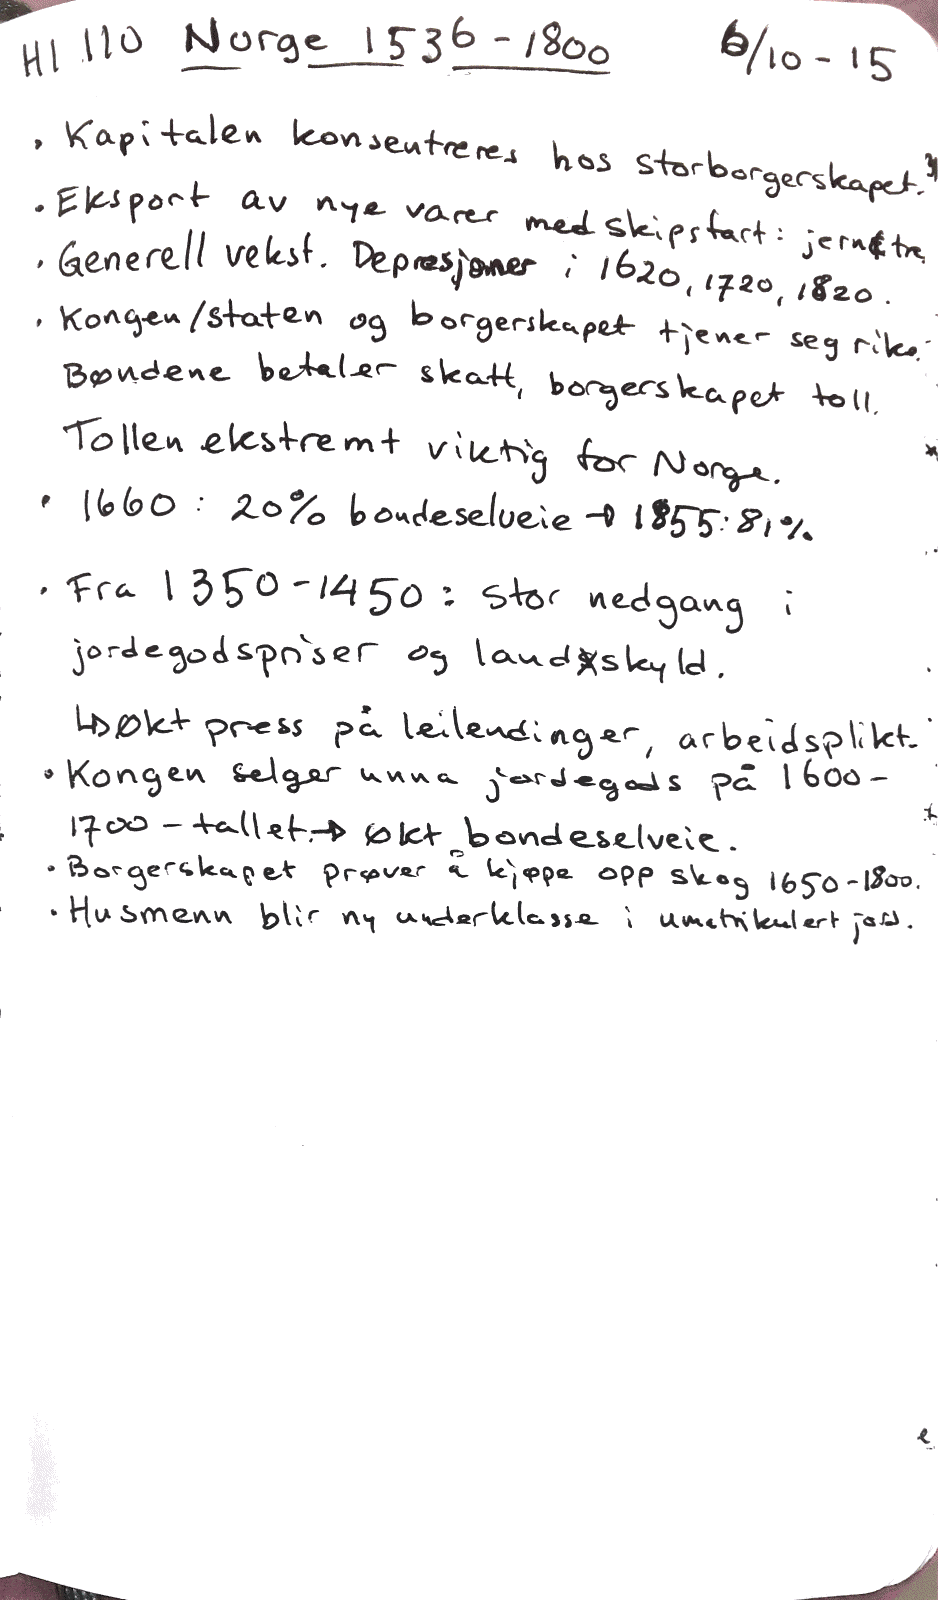 HI 110 Norge 1536-1800 6/10-15
• Kapitalen konsentreres hos storborgerskapet.
• Eksport av nye varer med skipsfart: jern & tre.
• Generell vekst. Depresjoner i 1620, 1720, 1820.
• Kongen/staten og borgerskapet tjener seg rike.
Bøndene betaler skatt, borgerskapet toll.
Tollen ekstremt viktig for Norge.
• 1660: 20% bondeselveie → 1855: 81%
• Fra 1350-1450: stor nedgang i
jordegodspriser og landskyld.
↳ Økt press på leilendinger, arbeidsplikt.
• Kongen selger unna jordegods på 1600-
1700-tallet. → økt bondeselveie.
• Borgerskapet prøver å kjøpe opp skog 1650-1800.
• Husmenn blir ny underklasse i umatrikulert jord.